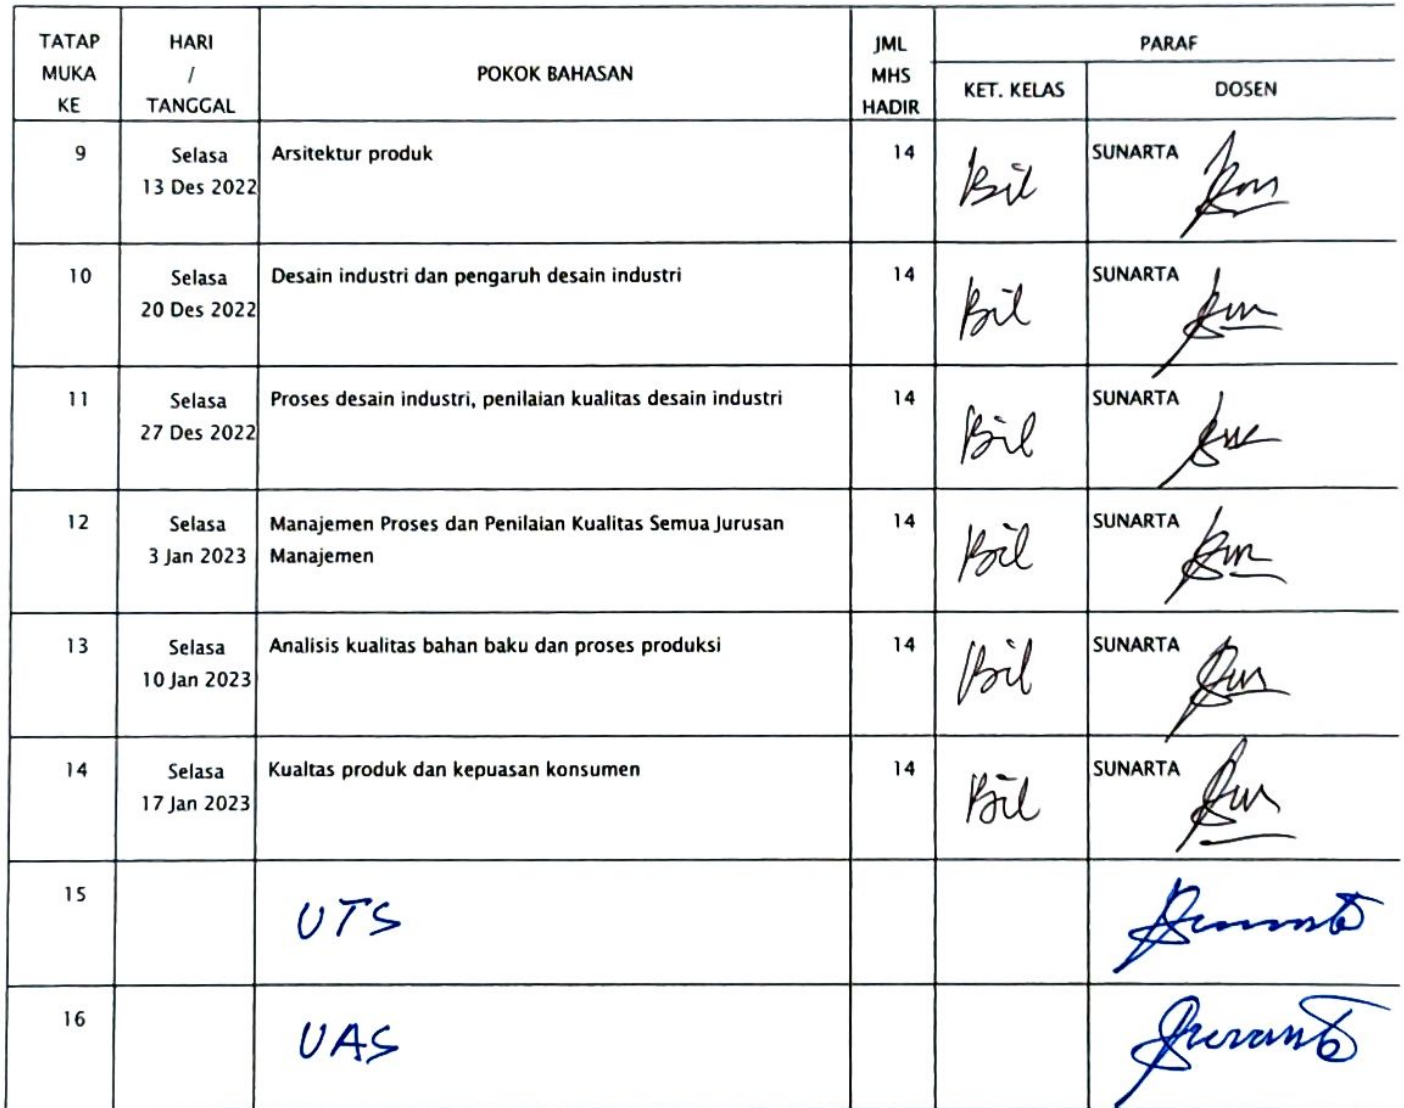 TATAP MUKA KE
HARI / TANGGAL
POKOK BAHASAN
JML MHS HADIR
PARAF
KET. KELAS
DOSEN
9
Selasa
13 Des 2022
Arsitektur produk
14
Bil
SUNARTA
10
Selasa
20 Des 2022
Desain industri dan pengaruh desain industri
14
Bil
SUNARTA
11
Selasa
27 Des 2022
Proses desain industri, penilaian kualitas desain industri
14
Bil
SUNARTA
12
Selasa
3 Jan 2023
Manajemen Proses dan Penilaian Kualitas Semua Jurusan
Manajemen
14
Bil
SUNARTA
13
Selasa
10 Jan 2023
Analisis kualitas bahan baku dan proses produksi
14
Bil
SUNARTA
14
Selasa
17 Jan 2023
Kualtas produk dan kepuasan konsumen
14
Bil
SUNARTA
15
UTS
16
UAS